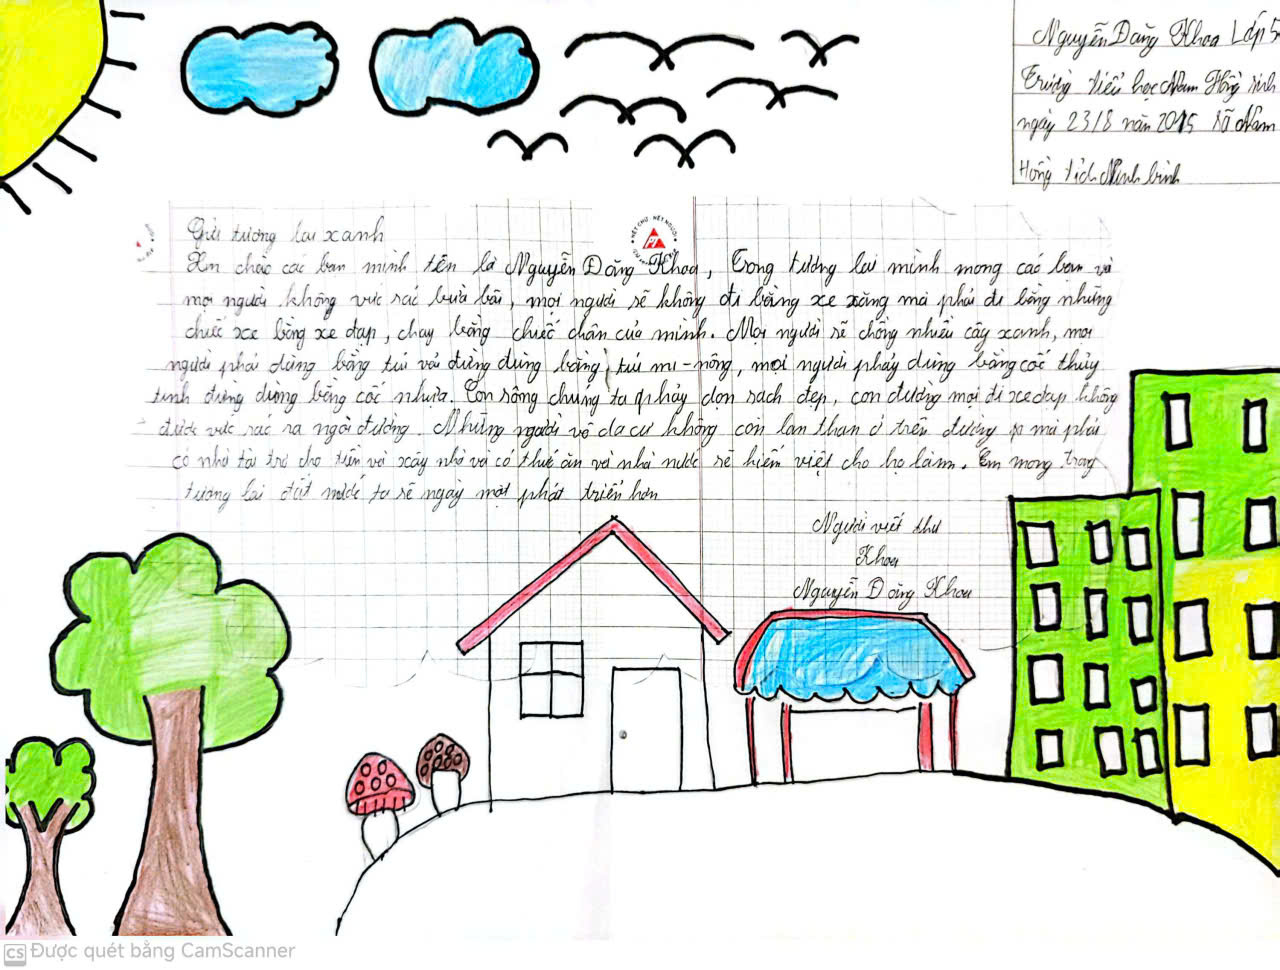 Nguyễn Đăng Khoa Lớp 5
Trường tiểu học Nam Hồng sinh
ngày 23/8 năm 2015 xã Nam
Hồng tỉnh Ninh bình
Gửi tương lai xanh
Xin chào các bạn mình tên là Nguyễn Đăng Khoa, Trong tương lai mình mong các bạn và
mọi người không vức rác bừa bãi, mọi người sẽ không đi bằng xe xăng mà phải đi bằng những
chiếc xe bằng xe đạp, chạy bằng chiếc chân của mình. Mọi người sẽ chồng nhiều cây xanh, mọi
người phải dùng bằng túi vải đừng dùng bằng túi ni-nông, mọi người phảy dùng bằng cốc thủy
tinh đừng dùng bằng cốc nhựa. Con sông chúng ta phảy dọn sạch đẹp, con đường mọi đi xe đạp không
được vức rác ra ngoài đường. Những người vô da cư không còn lan than ở trên đường mà phải
có nhà tài trợ cho tiền và xây nhà và có thức ăn và nhà nước sẽ kiếm việt cho họ làm. Em mong trong
tương lai đất nước ta sẽ ngày một phát triển hơn
Người viết thư
Khoa
Nguyễn Đăng Khoa
NÉT CHỮ NẾT NGƯỜI
CS Được quét bằng CamScanner